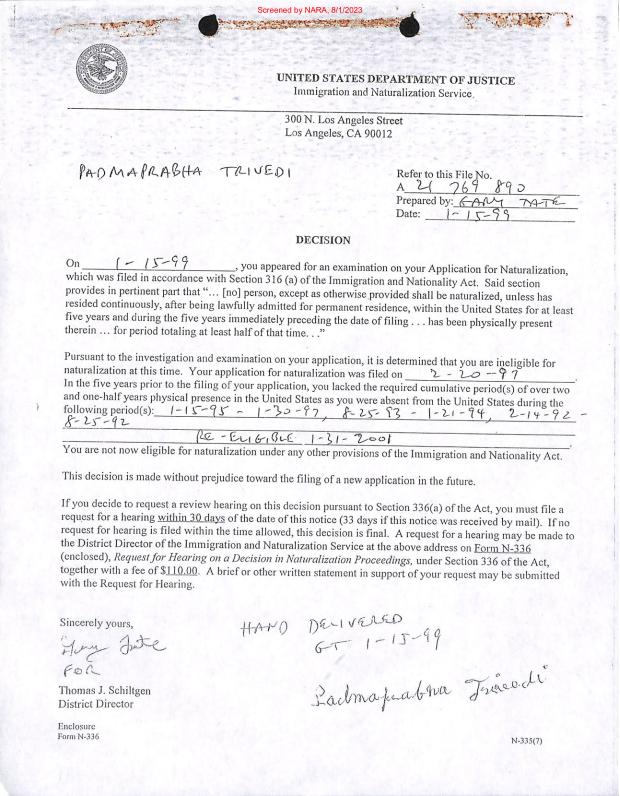 Screened by NARA, 8/1/2023
UNITED STATES DEPARTMENT OF JUSTICE
Immigration and Naturalization Service
300 N. Los Angeles Street
Los Angeles, CA 90012
PADMAPRABHA TRIVEDI
Refer to this File No.
A 21 769 890
Prepared by: GARY TATE
Date: 1-15-99
DECISION
On 1-15-99, you appeared for an examination on your Application for Naturalization,
which was filed in accordance with Section 316 (a) of the Immigration and Nationality Act. Said section
provides in pertinent part that "... [no] person, except as otherwise provided shall be naturalized, unless has
resided continuously, after being lawfully admitted for permanent residence, within the United States for at least
five years and during the five years immediately preceding the date of filing . . . has been physically present
therein ... for period totaling at least half of that time. . ."
Pursuant to the investigation and examination on your application, it is determined that you are ineligible for
naturalization at this time. Your application for naturalization was filed on 2-20-97.
In the five years prior to the filing of your application, you lacked the required cumulative period(s) of over two
and one-half years physical presence in the United States as you were absent from the United States during the
following period(s): 1-15-95 - 1-30-97, 8-25-93 - 1-21-94, 2-14-92 -
8-25-92
RE-ELIGIBLE 1-31-2001
You are not now eligible for naturalization under any other provisions of the Immigration and Nationality Act.
This decision is made without prejudice toward the filing of a new application in the future.
If you decide to request a review hearing on this decision pursuant to Section 336(a) of the Act, you must file a
request for a hearing within 30 days of the date of this notice (33 days if this notice was received by mail). If no
request for hearing is filed within the time allowed, this decision is final. A request for a hearing may be made to
the District Director of the Immigration and Naturalization Service at the above address on Form N-336
(enclosed), Request for Hearing on a Decision in Naturalization Proceedings, under Section 336 of the Act,
together with a fee of $110.00. A brief or other written statement in support of your request may be submitted
with the Request for Hearing.
Sincerely yours,
HAND DELIVERED
GT 1-15-99
Gary Tate
FOR
Padmaprabha Trivedi
Thomas J. Schiltgen
District Director
Enclosure
Form N-336
N-335(7)